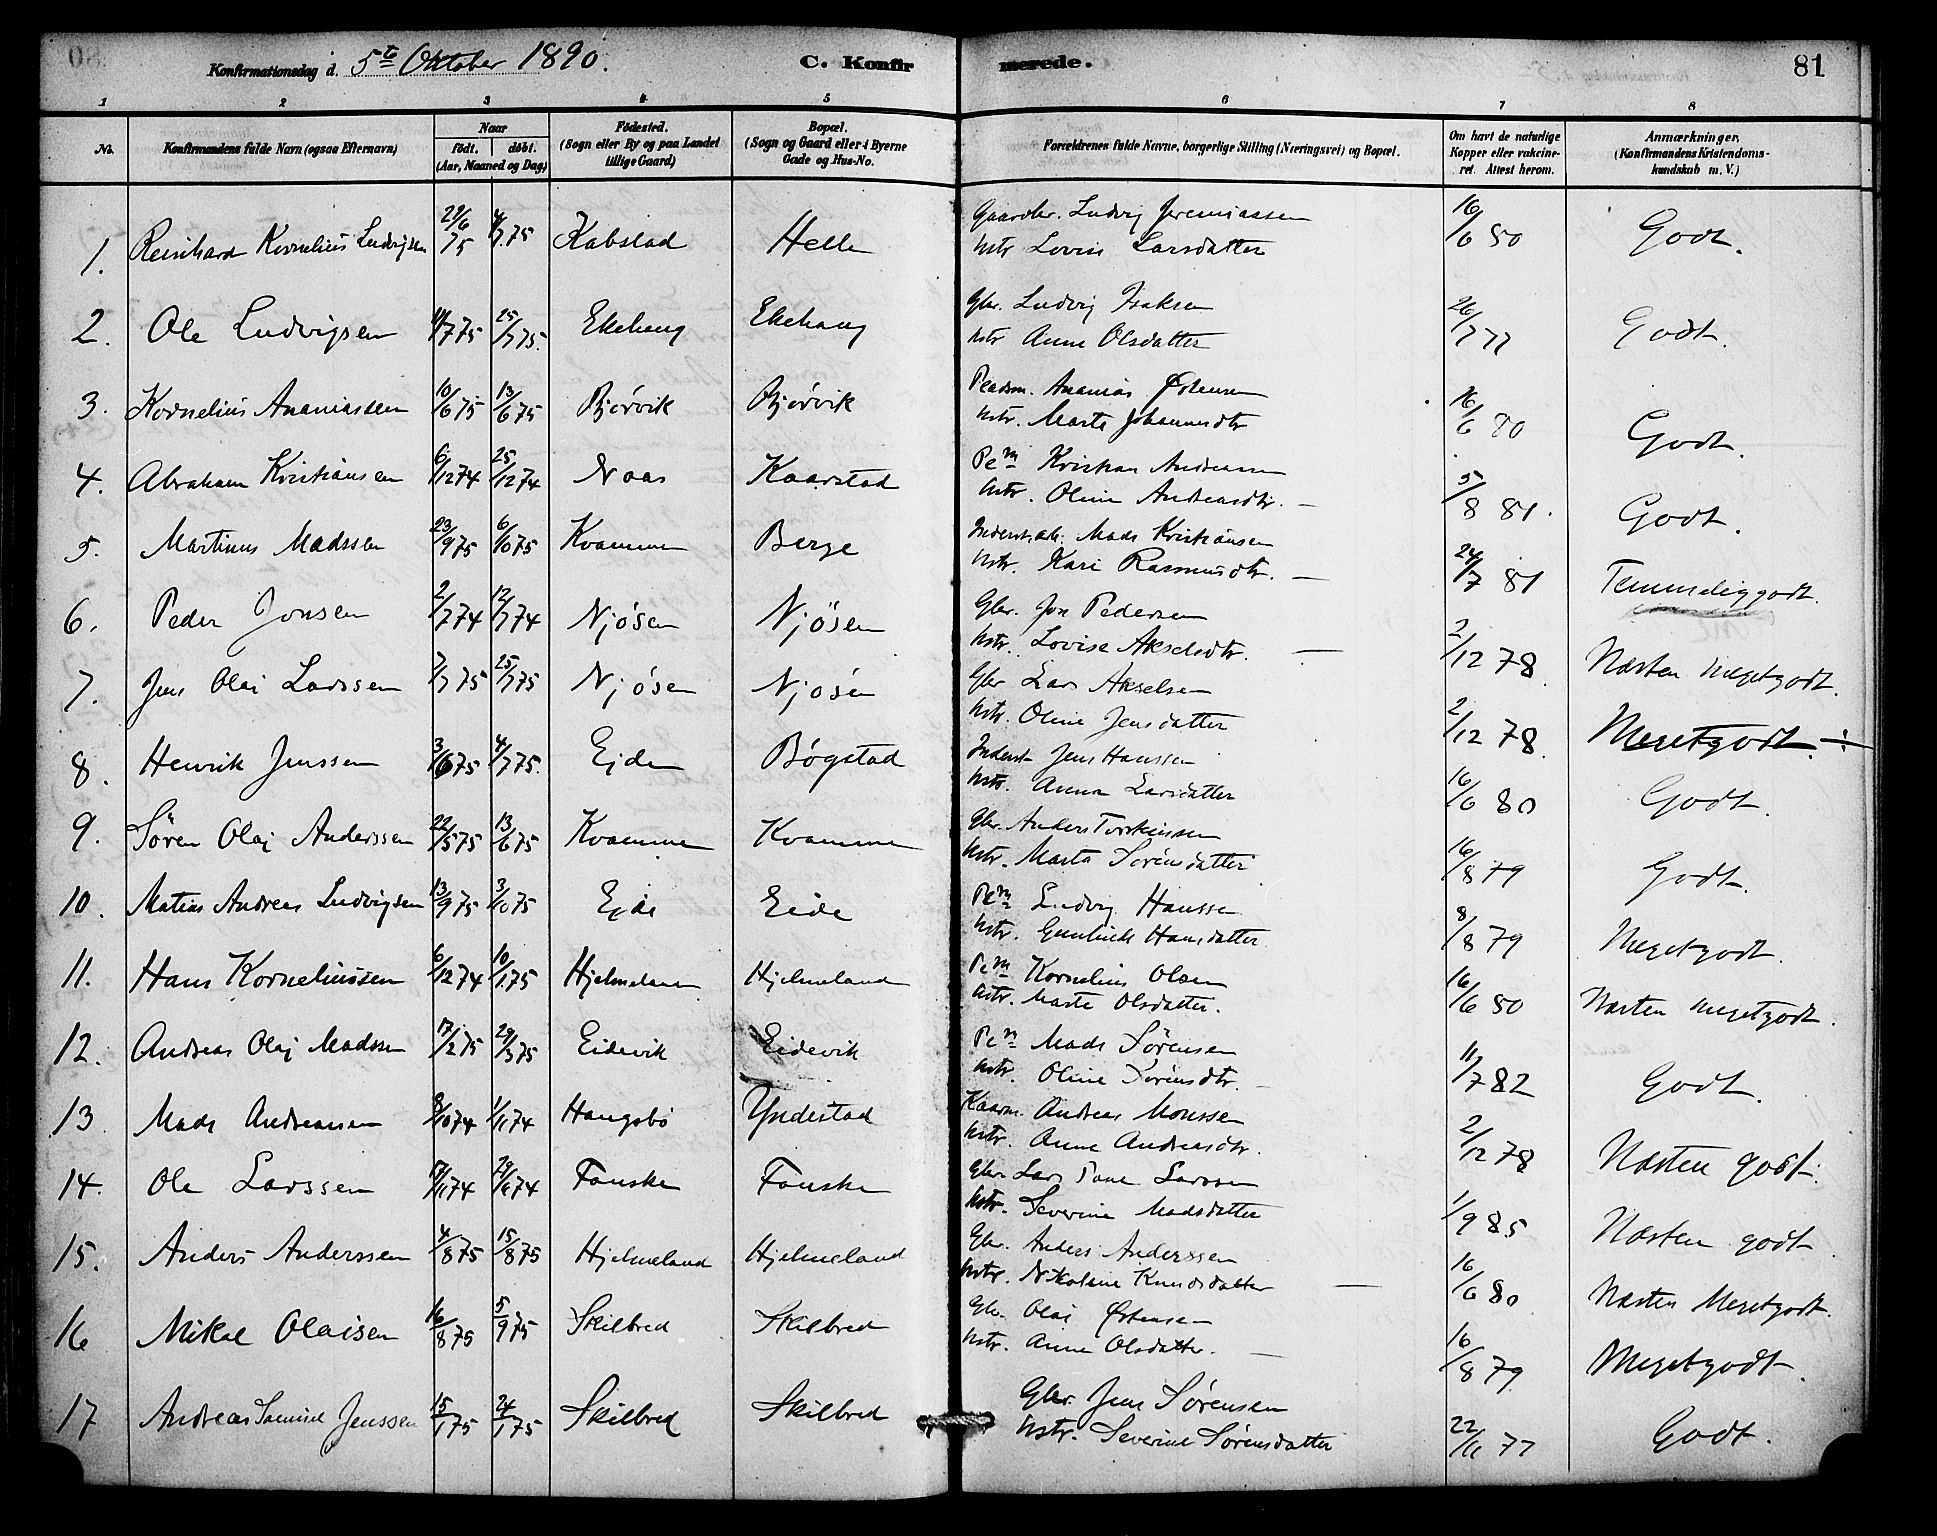 Konfirmationsdag d. 5te Oktober 1890.
C. Konfir
merede.
81
1 2 3 4 5 6 7 8
No.
Konfirmandens fulde Navn (ogsaa Efternavn)
Naar
født. døbt.
(Aar, Maaned og Dag)
Fødested.
(Sogn eller By og paa Landet
tillige Gaard)
Bopæl.
(Sogn og Gaard eller i Byerne
Gade og Hus-No.
Forældrenes fulde Navne, borgerlige Stilling (Næringsvei) og Bopæl.
Om havt de naturlige
Kopper eller vakcine-
ret. Attest herom.
Anmærkninger,
(Konfirmandens Kristendoms-
kundskab m. V.)
Gaardbr. Ludvig Jeremiassen
1. Reinhard Kornelius Ludvigsen 29/6 75 4/7 75 Kabstad Helle Hstr Lovise Larsdatter 16/6 80 Godt.
Gbr. Ludvig Isaksen
2. Ole Ludvigsen 11/7 75 25/7 75. Ekehaug Ekehaug Hstr Anne Olsdatter 26/7 77 Godt.
Pladsm. Ananias Østensen
3. Kornelius Ananiassen 10/6 75 13/6 75 Bjørvik Bjørvik Hstr. Marte Johannesdtr 16/6 80 Godt.
Pl.m Kristian Andreassen
4. Abraham Kristiansen 6/12 74 25/12 74 Naas Kaarstad Hstr. Oline Andreasdtr. — 5/8 81. Godt.
Inderst. Mads Kristiansen
5. Martinus Madssen 23/9 75 6/10 75 Kvamme Berge Hstr. Kari Rasmusdtr. — 24/7 81 Temmeliggodt.
Gbr. Jon Pedersen
6. Peder Jonsen 2/7 74 12/7 74 Njøsen Njøsen Hstr. Lovise Akselsdtr. — 2/12 78. Næsten megetgodt.
Gbr Lars Akselsen
7. Jens Olai Larssen 7/7 75 25/7 75 Njøsen Njøsen Hstr. Oline Jensdatter 2/12 78. Megetgodt ÷
Inderst Jens Hanssen
8. Henrik Jenssen 3/6 75 4/7 75. Ejde Bøgstad Hstr. Anna Larsdatter 16/6 80 Godt.
Gbr. Anders Torkilssen
9. Søren Olaj Anderssen 22/5 75 13/6 75 Kvamme Kvamme Hstr. Marta Sørensdatter 16/8 79 Godt.
Pl.m Ludvig Hanssen
10. Matias Andreas Ludvigsen 13/9 75 3/10 75 Ejde Eide Hstr. Gunhild Hansdatter 8/8 79 Megetgodt.
Pl.m Kornelius Olsen
11. Hans Korneliussen 6/12 74 10/1 75 Hjelmeland Hjelmeland Hstr. Marte Olsdatter. 16/6 80 Næsten megetgodt.
Pl.m Mads Sørensen
12. Andreas Olaj Madssen 17/2 75 29/3 75 Eidevik Eidevik Hstr. Oline Sørensdtr. — 11/7 82 Godt.
Kaarm. Andreas Monssen
13. Mads Andreassen 8/10 74 1/11 74 Haugsbø Yndestad Hstr. Anne Andreasdtr. 2/12 78 Næsten godt.
Gbr. Lars Larssen
14. Ole Larssen 17/11 74 29/11 74 Fauske Fauske Hstr. Severine Madsdatter 1/9 85 Næsten godt
Gbr. Anders Anderssen
15. Anders Anderssen 4/8 75 15/8 75 Hjelmeland Hjelmeland Hstr. Nikoline Knudsdatter — 16/6 80 Næsten Megetgodt.
Gbr. Olai Østensen
16 Mikal Olaisen 16/8 75 5/9 75 Skilbred Skilbred Hstr. Anne Olsdatter. — 16/8 79. Megetgodt.
Gbr. Jens Sørensen
17 Andreas Samuel Jenssen 15/1 75 24/1 75 Skilbred Skilbred Hstr. Severine Sørensdatter 22/11 77 Godt.